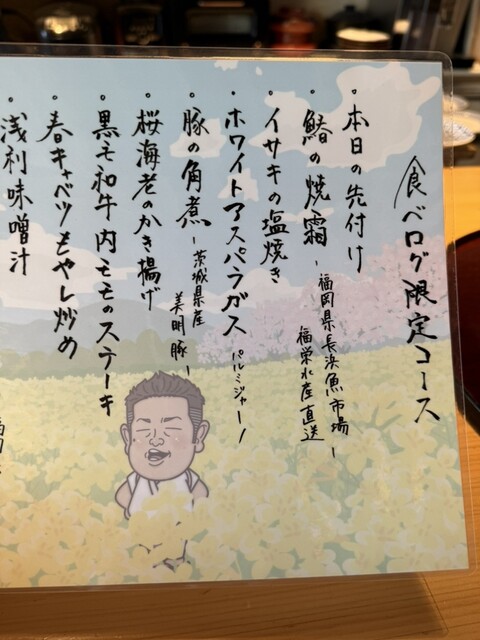 食べログ限定コース
・本日の先付け
・鰆の焼霜 -福岡県長浜魚市場-
福栄水産直送
・イサキの塩焼き
・ホワイトアスパラガス パルミジャーノ
・豚の角煮 -茨城県産
美明豚-
・桜海老のかき揚げ
・黒毛和牛内モモのステーキ
・春キャベツもやし炒め
・浅利味噌汁